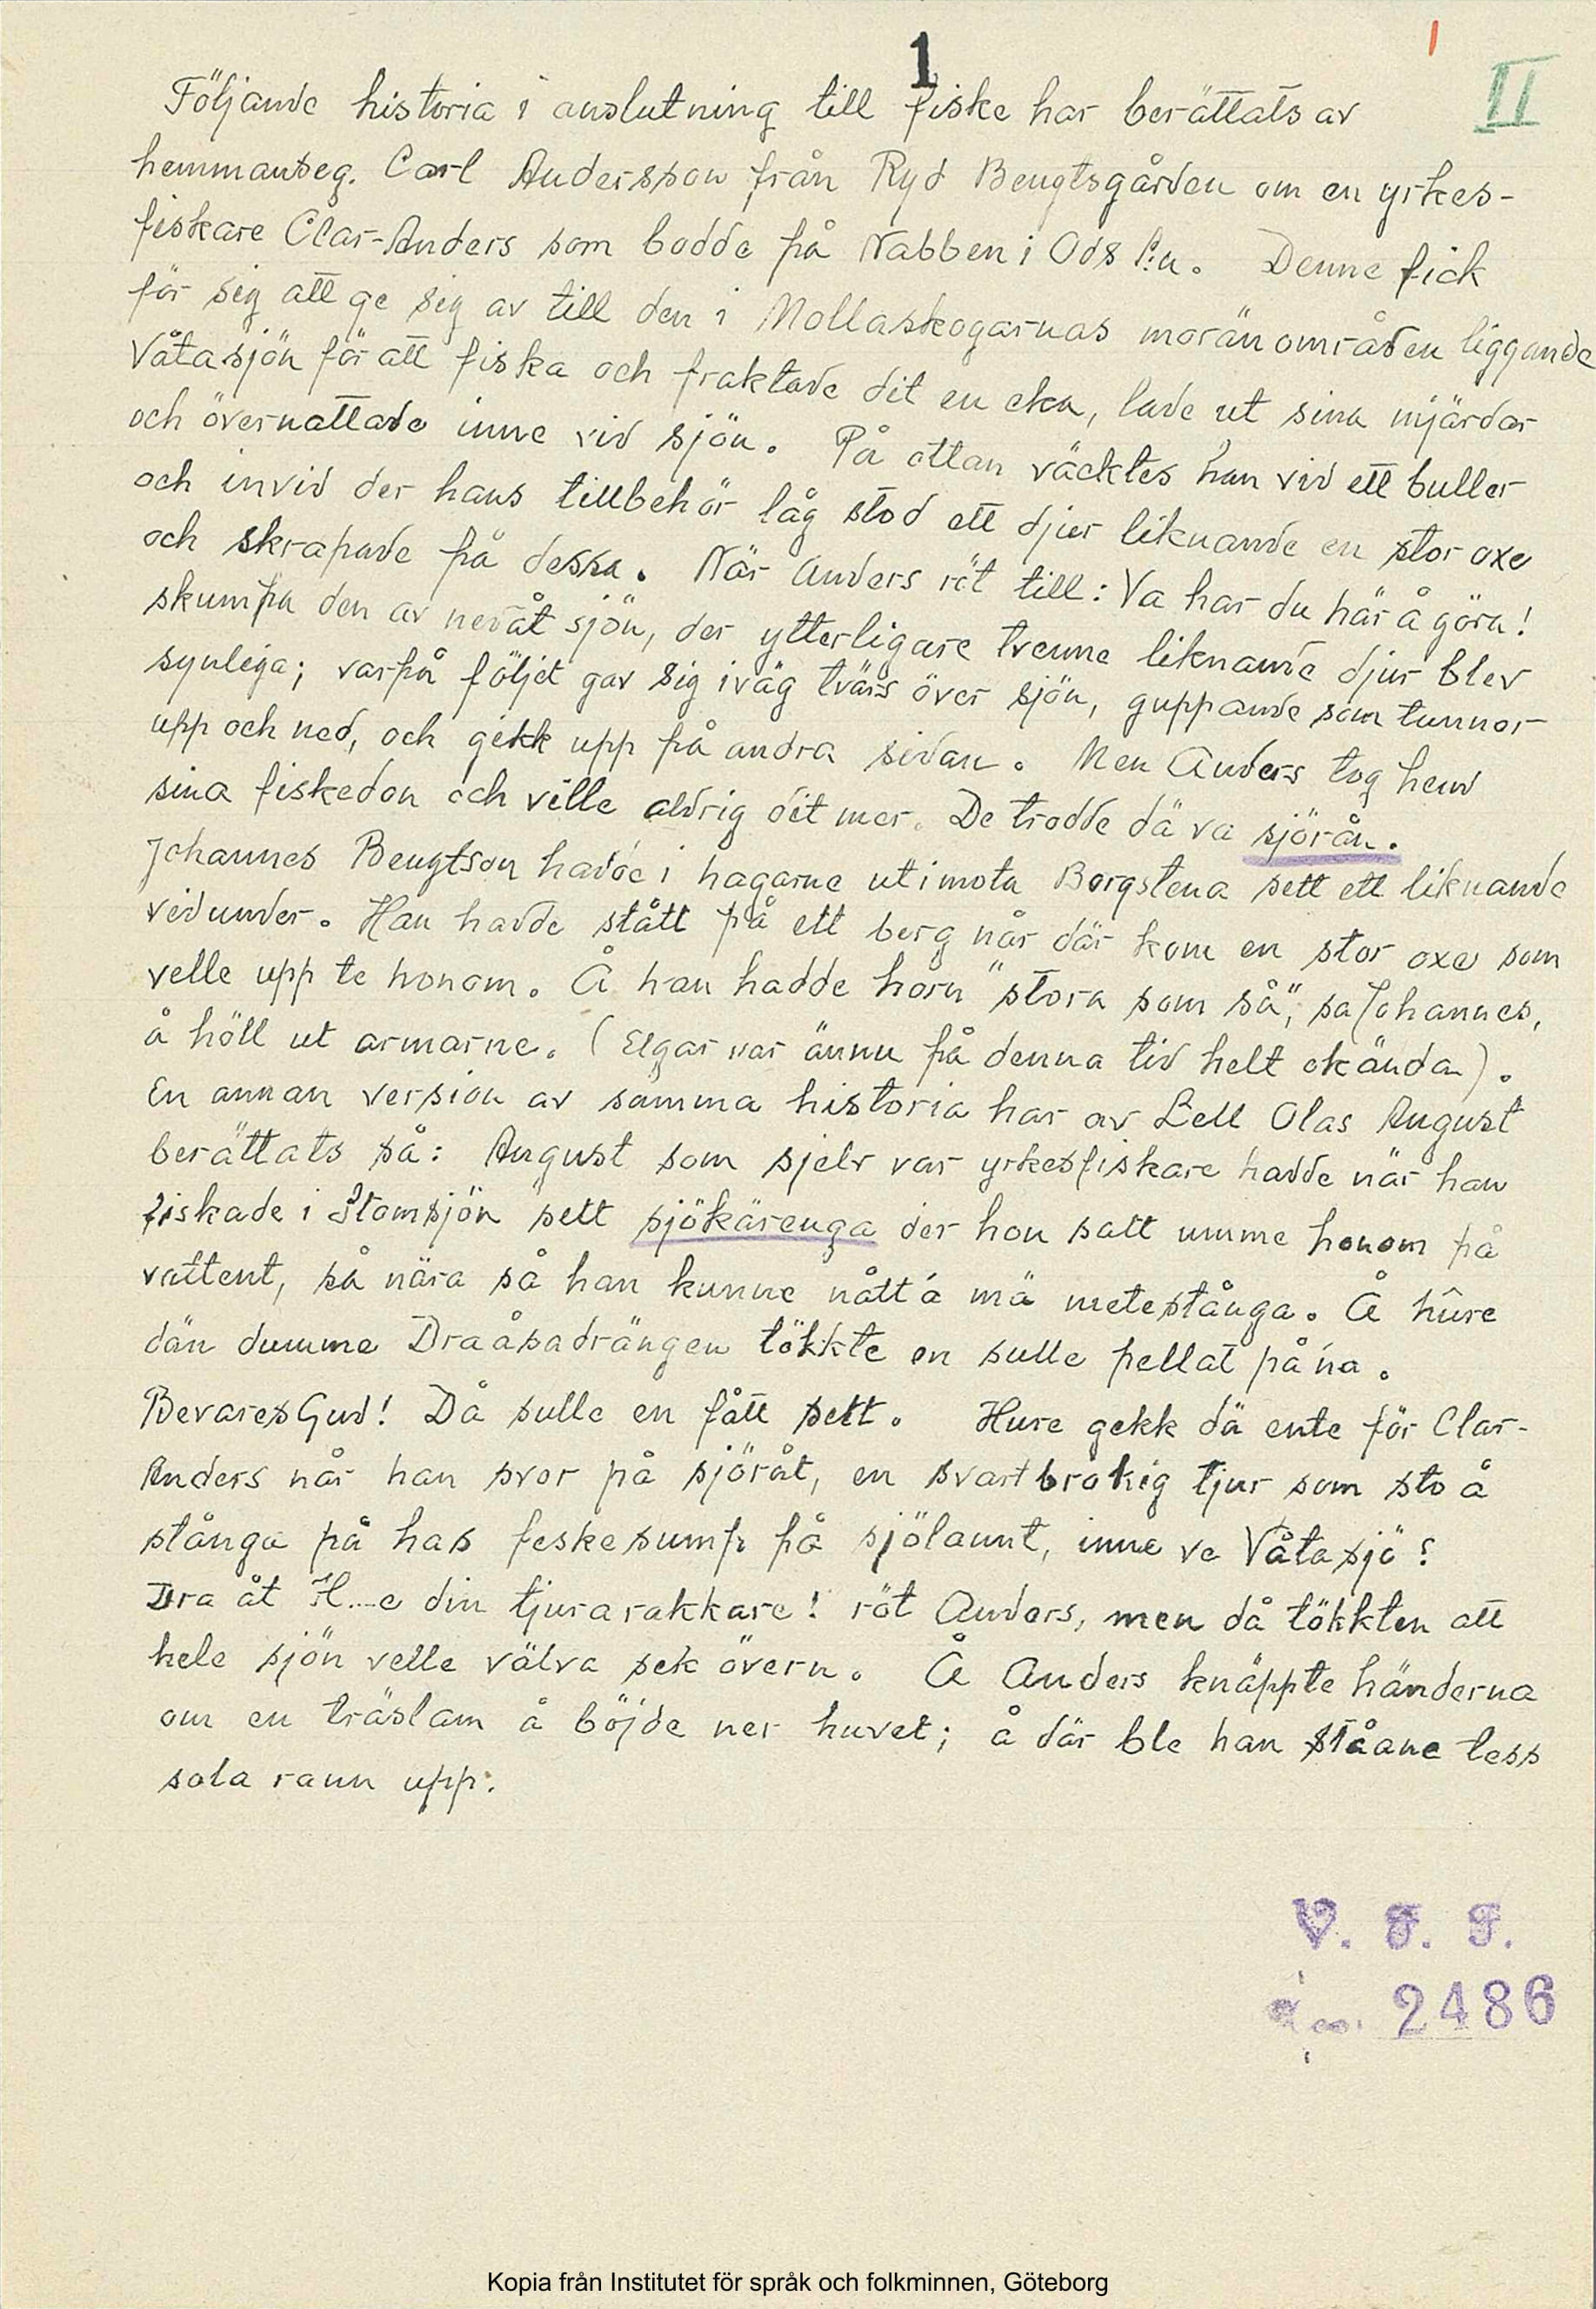 1
I
II
Följande historia i anslutning till fiske har berättats av
hemmanseg. Carl Andersson från Ryd Bengtsgården om en yrkes-
fiskare Clar-Anders som bodde på Nabben i Ods s:n. Denne fick
för sig att ge sig av till den i Mollaskogarnas moränområden liggande
Våtasjön för att fiska och fraktade dit en eka, lade ut sina mjärdar
och övernattade inne vid sjön. På ottan väcktes han vid ett buller
och invid der hans tillbehör låg stod ett djur liknande en stor oxe
och skrapade på dessa. När Anders röt till: Va har du här å göra!
skumpa den av nedåt sjön, der ytterligare trenne liknande djur blev
synliga; varpå följet gav sig iväg tvärs över sjön, guppande som tunnor
upp och ned, och gikk upp på andra sidan. Men Anders tog hem
sina fiskedon och ville aldrig dit mer. De trodde dä va sjörån.
Johannes Bengtson hade i hagarne utimota Borgstena sett ett liknande
vidunder. Han hadde stått på ett berg når där kom en stor oxe som
velle upp te honom. Å han hadde horn "stora som så", sa Johannes,
å höll ut armarne. (Elgar var ännu på denna tid helt okända).
En annan version av samma historia har av Lell Olas August
berättats så: August som sjelv var yrkesfiskare hadde när han
fiskade i Stomsjön sett sjökärenga der hon satt umme honom på
vattent, så nära så han kunne nått'á mä metestånga. Å hûre
dän dumme Draåsadrängen tökkte en sulle pellat på'na.
Bevares Gud! Då sulle en fått sett. Hure gekk dä ente för Clar-
Anders når han svor på sjöråt, en svartbrokig tjur som sto å
stånga på has feskesump på sjölannt, inne ve Våtasjö?
Dra åt H....e din tjurarakkare! röt Anders, men då tökkten att
hele sjön velle välva sek övern. Å Anders knäppte händerna
om en träslam å böjde ner huvet; å där ble han ståane tess
sola rann upp.
V. F. F.
2486
Kopia från Institutet för språk och folkminnen, Göteborg